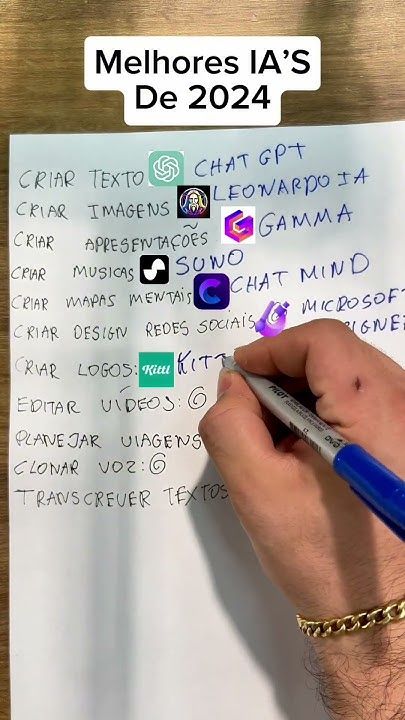 Melhores IA'S
De 2024
CRIAR TEXTO CHAT GPT
CRIAR IMAGENS LEONARDO IA
CRIAR APRESENTAÇÕES GAMMA
CRIAR MUSICAS SUNO
CRIAR MAPAS MENTAIS CHAT MIND
CRIAR DESIGN REDES SOCIAIS MICROSOFT
CRIAR LOGOS: Kittl KITT
EDITAR VÍDEOS:
PLANEJAR VIAGENS
CLONAR VOZ:
TRANSCREVER TEXTOS
PILOT